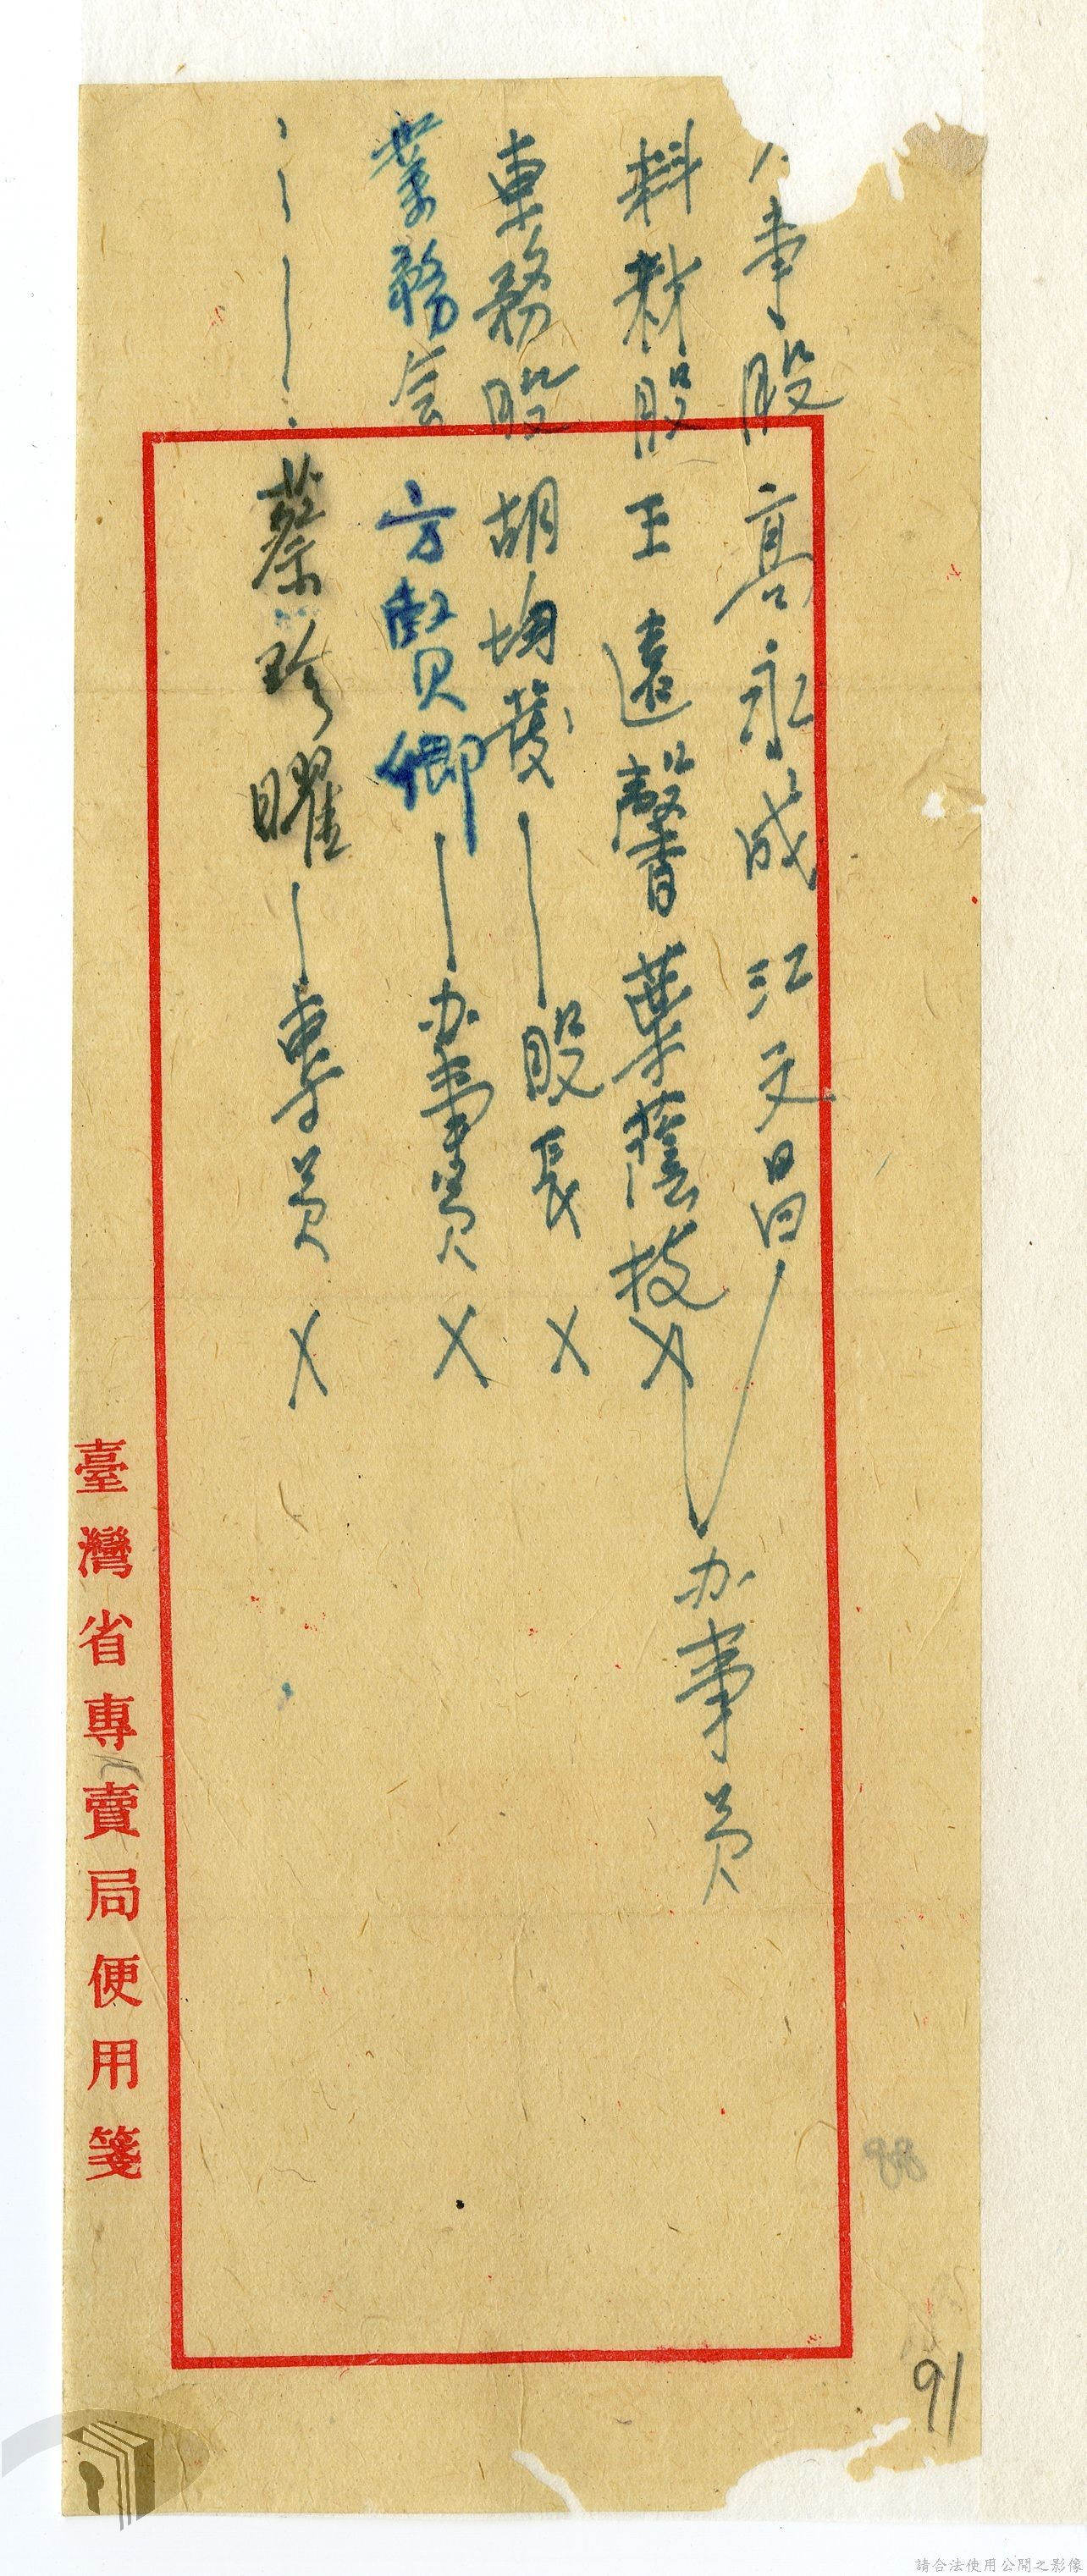 人事股 高永成 江天昌
料材股 王遠馨 葉蔭枝 × 办事員
車務股 胡均發 — 股長 ×
業務会 方賢卿 — 办事員 ×
蔡珍曜 — 專員 ×
臺灣省專賣局便用箋
88
91
請合法使用公開之影像